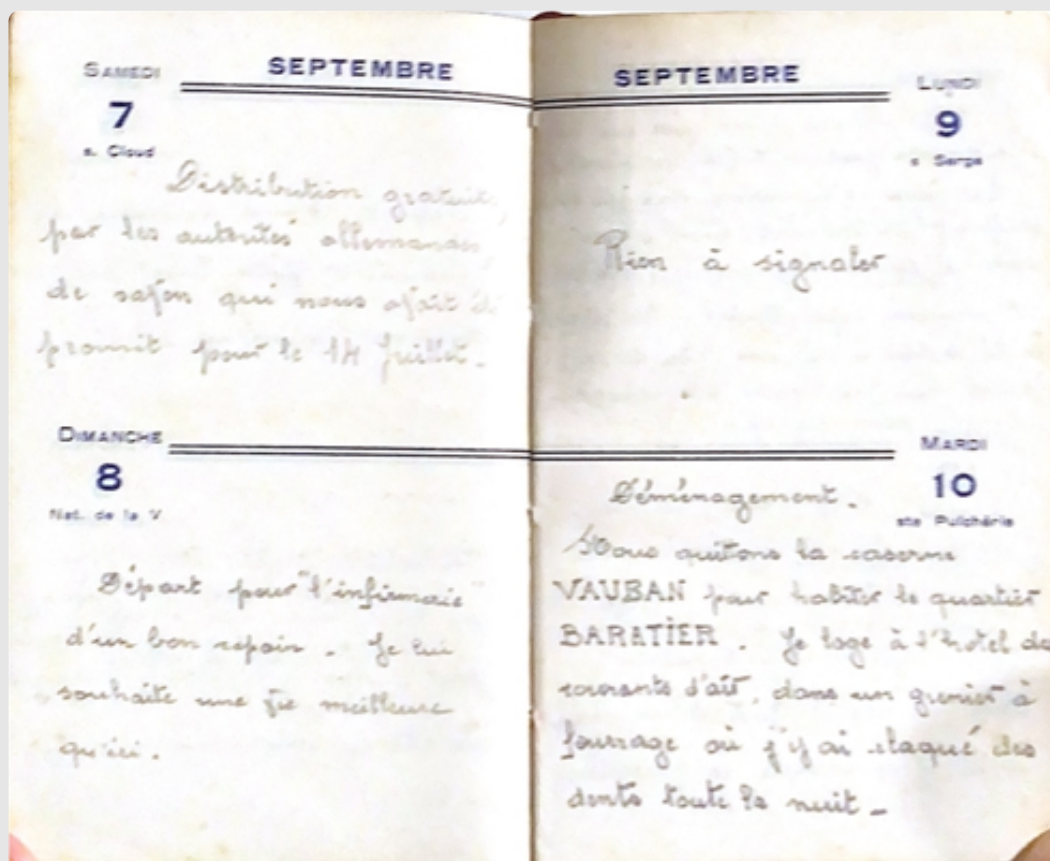 SAMEDI
SEPTEMBRE
7
s. Cloud
Distribution gratuite
par les autorités allemandes
de safon qui nous afait été
promit pour le 14 Juillet.
DIMANCHE
8
Nat. de la V
Départ pour "l'infirmerie"
d'un bon copain. Je lui
souhaite une fie meilleure
qu'ici.
SEPTEMBRE
LUNDI
9
s Serge
Rien à signaler
MARDI
10
ste Pulchérie
Déménagement.
Nous quitons la caserne
VAUBAN pour habiter le quartier
BARATIER. Je loge à l'hotel des
courants d'air, dans un grenier à
fourrage où j'y ai claqué des
dents toute la nuit -